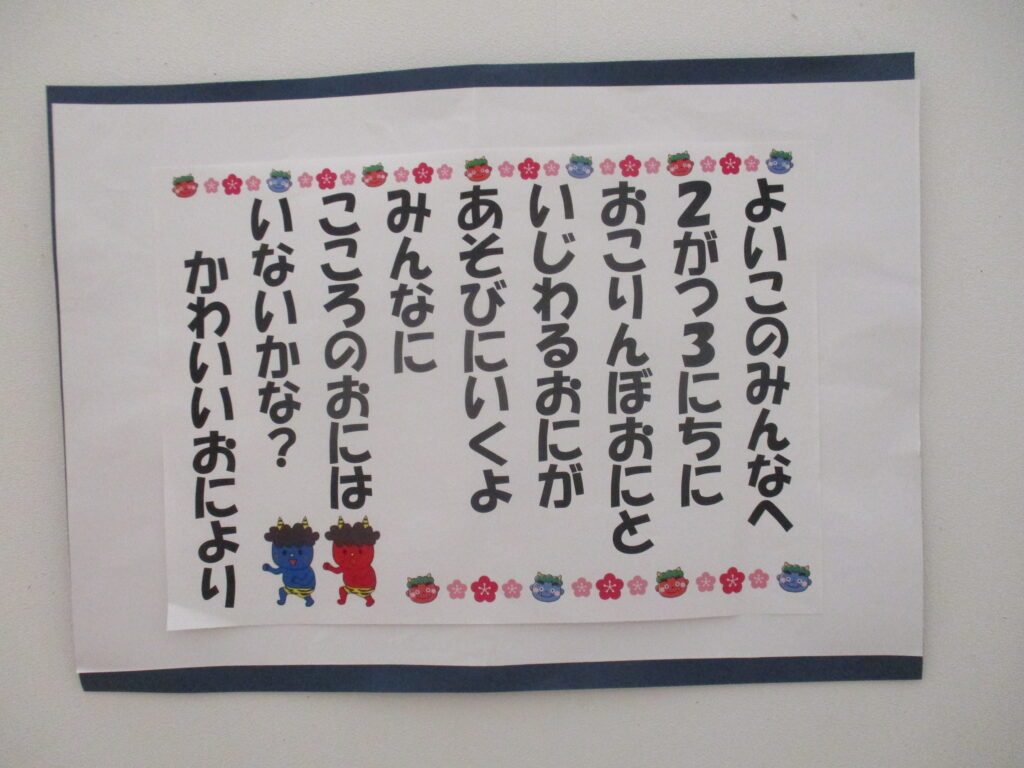 よいこのみんなへ
2がつ3にちに
おこりんぼおにと
いじわるおにが
あそびにいくよ
みんなに
こころのおには
いないかな?
かわいいおにより